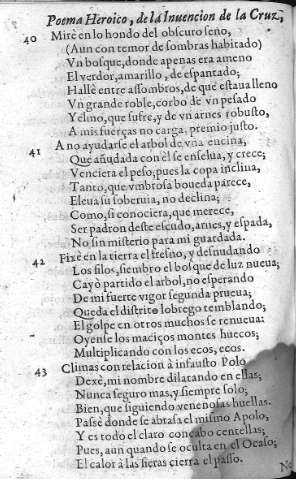 Poema Heroico, de la Inuencion de la Cruz,
40 Mirè en lo hondo del obscuro seno,
(Aun con temor de sombras habitado)
Vn bosque, donde apenas era ameno
El verdor, amarillo, de espantado;
Hallè entre assombros, de que estaua lleno
Vn grande roble, corbo de vn pesado
Yelmo, que sufre, y de vn arnes robusto,
A mis fuerças no carga, premio justo.
41 A no ayudarse el arbol de vna encina,
Que añudada con èl se enselua, y crece;
Venciera el peso; pues la copa inclina,
Tanto, que vmbrosa boueda parece,
Eleua su soberuia, no declina;
Como, si conociera, que merece,
Ser padron deste escudo, arnes, y espada,
No sin misterio para mi guardada.
42 Fixè en la tierra el fresno, y desnudando
Los filos, siembro el bosque de luz nueua;
Cayò partido el arbol, no esperando
De mi fuerte vigor segunda prueua;
Queda el distrito lobrego temblando;
El golpe en otros muchos se renueua:
Oyense los maciços montes huecos;
Multiplicando con los ecos, ecos.
43 Climas con relacion à infausto Polo
Dexè, mi nombre dilatando en ellas;
Nunca seguro mas, y siempre solo;
Bien, que siguiendo venenosas huellas.
Passè donde se abrasa el mismo Apolo,
Y es todo el claro concabo centellas;
Pues, aun quando se oculta en el Ocaso;
El calor à las fieras cierra el passo.